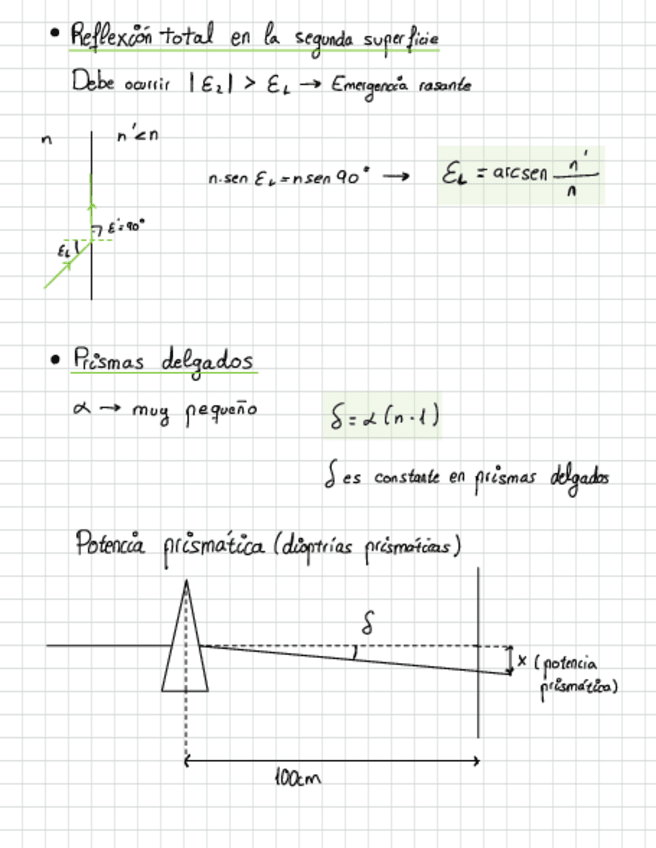 • Reflexión total en la segunda superficie
Debe ocurrir |ε₂| > ε_L → Emergencia rasante
n n'<n
n·sen ε_L = n sen 90° → ε_L = arcsen n'/n
ε'=90°
ε_L
• Prismas delgados
α → muy pequeño δ = α(n-1)
δ es constante en prismas delgados
Potencia prismática (dioptrías prismáticas)
δ
x (potencia
prismática)
100cm